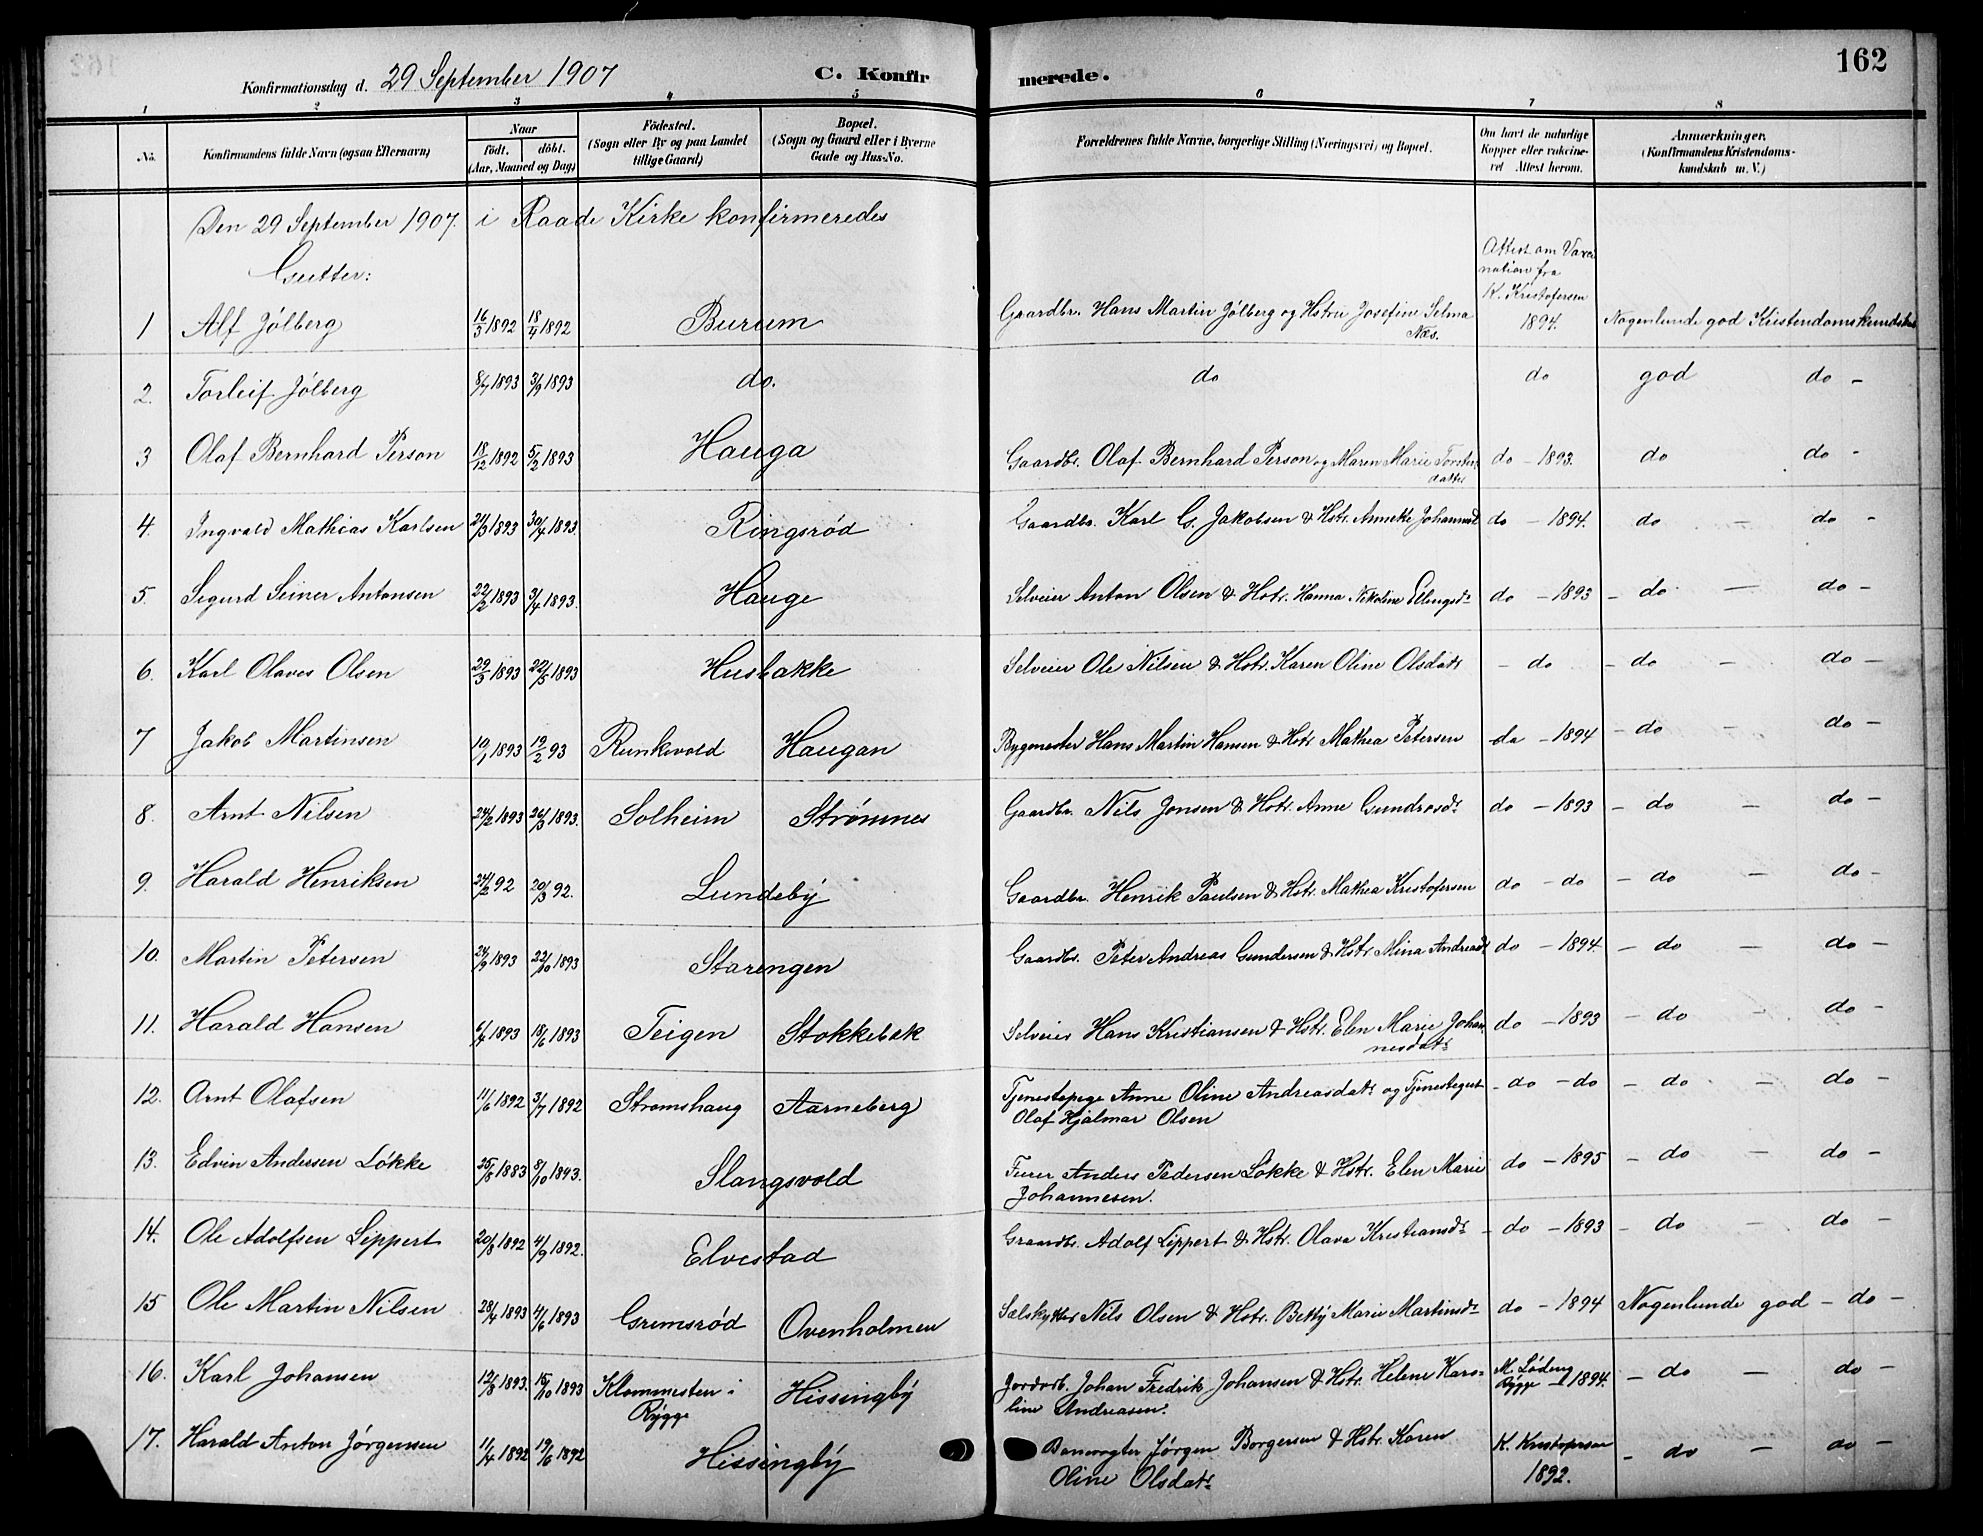 162
Konfirmationsdag d. 29 September 1907 C. Konfirmerede.
1 2 3 4 5 6 7 8
No. Konfirmandens fulde Navn (ogsaa Efternavn) Naar født. døbt. (Aar, Maaned og Dag) Fødested. (Sogn eller By og paa Landet tillige Gaard) Bopæl. (Sogn og Gaard eller i Byerne Gade og Hus-No. Forældrenes fulde Navne, borgerlige Stilling (Næringsvei) og Bopæl. Om havt de naturlige Kopper eller vaccineret Attest herom. Anmærkninger. (Konfirmandens Kristendomskundskab m. V.)
Den 29 September 1907. i Raade Kirke konfirmeredes
Gutter:
1 Alf Jølberg 16/3 1892 18/4 1892 Burum Gaardbr. Hans Martin Jølberg og Hstru Josefin Selma Næs. Attest om Vaccination fra K. Kristofersen 1894. Nogenlunde god Kristendomskundskab
2. Torleif Jølberg 8/7 1893 3/9 1893 do. do do god do -
3 Olaf Bernhard Person 18/12 1892 5/2 1893 Hauga Gaardbr. Olaf Bernhard Person og Maren Marie Torstensdatter do - 1893. do do -
4. Ingvald Mathias Karlsen 24/3 1893 30/4 1893. Ringsrød Gaardbr. Karl G. Jakobsen & Hstr. Annette Johannesd do - 1894. do - do -
5. Sigurd Seiner Antonsen 22/2 1893 3/4 1893. Hauge Selveier Anton Olsen & Hstr. Hanna Nikoline Ellingsdr do - 1893 - do - do -
6. Karl Olaves Olsen 29/3 1893 22/5 1893 Husbakke Selveier Ole Nilsen & Hstr. Karen Oline Olsdatr - do - do - do -
7 Jakob Martinsen 19/1 1893 19/2 93 Runkvold Haugan Bygmester Hans Martin Hansen & Hstr Mathea Petersen do - 1894 - do - do -
8. Arnt Nilsen 24/2 1893 26/3 1893. Solheim Strømnes Gaardbr. Nils Jonsen & Hstr. Anne Gundrosdr do - 1893 - do - do -
9. Harald Henriksen 24/2 92 20/3 92. Lundeby Gaardbr. Henrik Paulsen & Hstr. Mathea Kristofersen do - do - do - do -
10. Martin Petersen 24/9 1893 22/10 1893 Starengen Gaardbr. Peter Andreas Gundersen & Hstr. Mina Andreasdr do - 1894 - do - do -
11. Harald Hansen 6/4 1893 18/6 1893 Teigen Stokkebæk Selveier Hans Kristiansen & Hstr. Elen Marie Johannesdatr do - 1893 - do - do -
12. Arnt Olafsen 11/6 1892 3/7 1892 Stromshaug Aarneberg Tjenestepige Anne Oline Andreasdatr og Tjenestegut Olaf Hjalmar Olsen - do - do - do - do -
13. Edvin Andersen Løkke 25/8 1883 8/10 1843. Slangsvold Furer Anders Pedersen Løkke & Hstr. Elen Marie Johannesen. do - 1895 - do - do -
14. Ole Adolfsen Lippert 20/8 1892 4/9 1892. Elvestad Graardbr. Adolf Lippert & Hstr. Olava Kristiansdr - do - 1893 - do - do -
15 Ole Martin Nilsen 28/4 1893 4/6 1893 Gremsrød Ovenholmen Sælskytter Nils Olsen & Hstr. Betty Marie Martinsdr do - 1894 Nogenlunde god - do -
16. Karl Johansen 12/8 1893. 15/10 1893 Klommesten i Rygge Hissingby Jordarb. Johan Fredrik Johansen & Hstr. Helene Karoline Andreasen. M. Lødeng Rygge - 1894. - do - do -
17. Harald Anton Jørgensen 11/4 1892 19/6 1892 Hissingby Banevogter Jørgen Borgersen & Hstr. Karen Oline Olsdatr K. Kristofersen 1892. - do - do -